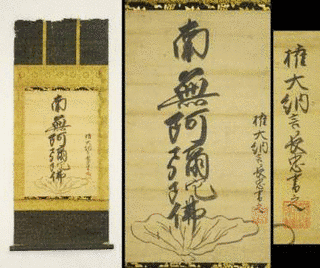 南無阿彌陀佛
権大納言長忠書之
南無阿彌陀佛
権大納言長忠書之
権大納言長忠書之